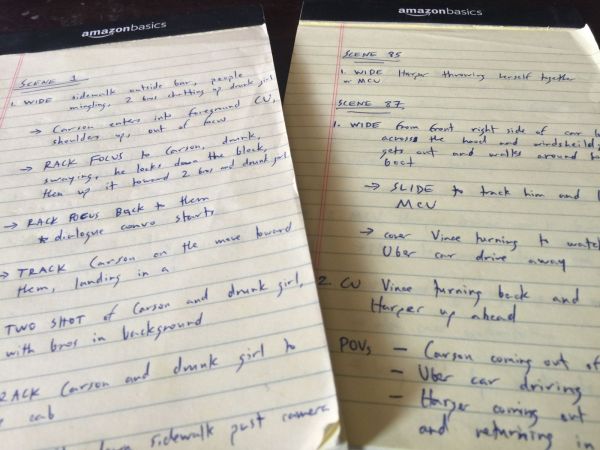 amazonbasics
SCENE 1
1. WIDE sidewalk outside bar, people
mingling, 2 bros chatting up drunk girl
→ Carson enters into foreground CU,
shoulders up, out of focus
→ RACK FOCUS to Carson, drunk,
swaying, he looks down the block,
then up it toward 2 bros and drunk girl
→ RACK FOCUS BACK to them
* dialogue convo starts
→ TRACK Carson on the move toward
them, landing in a
TWO SHOT of Carson and drunk girl,
with bros in background
RACK Carson and drunk girl to
cab
sidewalk past camera
amazonbasics
SCENE 85
1. WIDE Harper throwing herself together
or MCU
SCENE 87
1. WIDE from front right side of car
across the hood and windsheild
gets out and walks around
boot
→ SLIDE to track him and
MCU
→ cover Vince turning to watch
Uber car drive away
2. CU Vince turning back and
Harper up ahead
POVs - Carson coming out of
- Uber car driving
- Harper coming out
and returning in